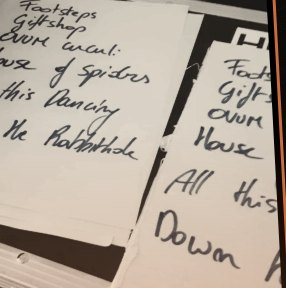 Footsteps
Giftshop
ovum cuculi.
ouse of Spiders
this Dancing
the Rabbithole
H
Foots
Gifts
ovum
House
All this
Down